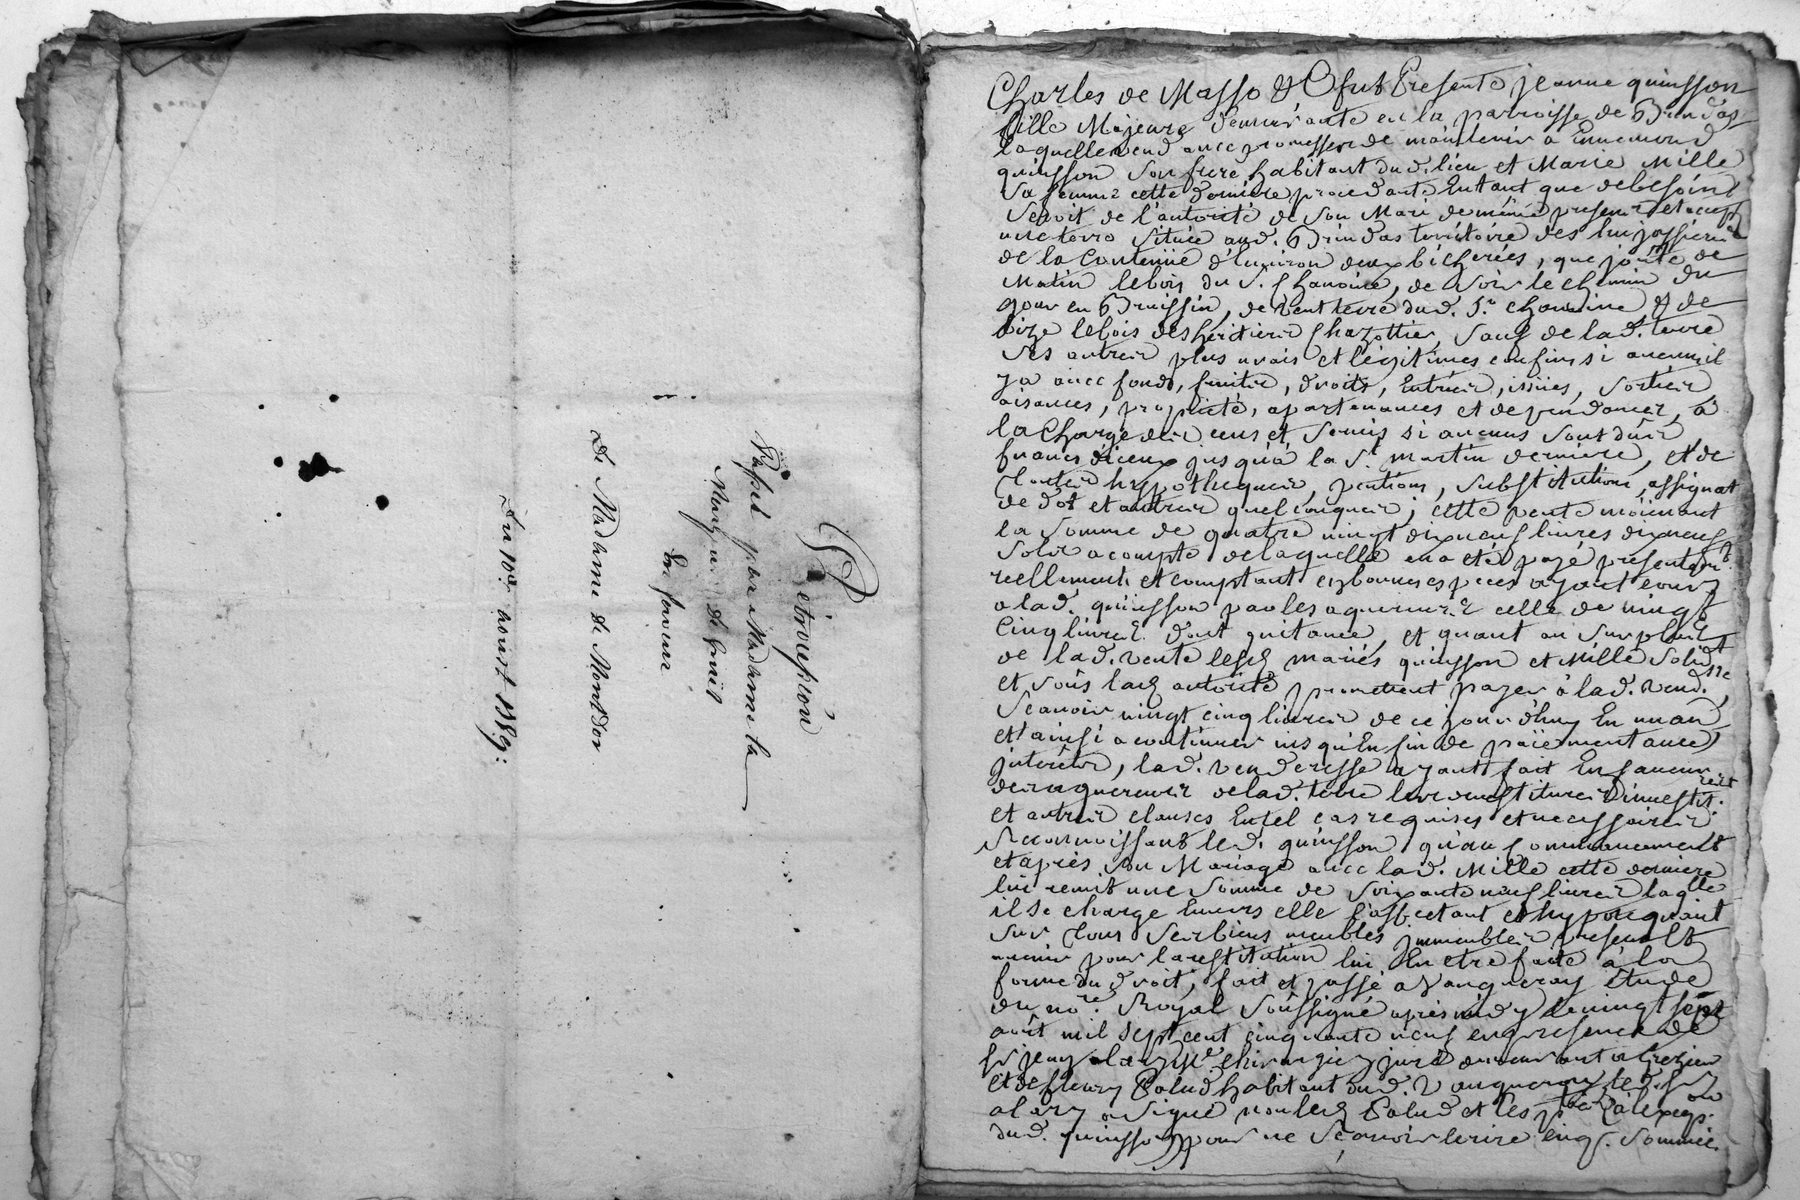 Rétrocession
Passé par Madame la
Marquise de
En faveur
De Madame de Montdor
Du 10e aoust 1789.
Charles de Masso & C fut Presente jeanne quinsson
fille Majeure demeurante en la parroisse de Brindas
laquelle vend avec promesse de maintenir a Ennemond
quinsson son frere habitant dud. lieu et Marie Mille
sa femme cette derniere procedante Entant que debesoin
seroit de l'autorité de son Mari demême present et accept
une terre située aud. Brindas territoire des
de la Contenüe d'Environ deux bicherées, que joint de
Matin lebois du S. Chanoine, de soir le chemin du
gour en Bruissin, de vent terre dud. Sr. Chanoine & de
bize lebois desheritiers Chazottier, sauf de lad. terre
ses autres plus vrais et légitimes confins si aucuns il
ya avec fonds, fruits, droits, Entrées, issües, sorties
aisances, proprieté, apartenances et dependances, à
la Charge des cens et servis si aucuns sont dûs
francs diceux jusqu'à la St. martin derniere, et de
toutes hypotheques, pentions, substitutions, assignat
de dot et autres quelconques, cette vente moienant
la somme de quatre vingt dixneuf livres dixneuf
sols acompte delaquelle en a eté payé presentemt.
reellement et comptant en bonnes especes ayant cours
a lad. quinsson par les aquereurs celle de vingt
Cinq livres dont quitance, et quant au surplus
de lad. vente lesd mariés quinsson et Mille solid
et sous lad autorité promettent payer à lad. vend.
sçavoir vingt cinq livres de ce jourd'huy En un an
et ainsi a continuer jusqu'En fin de païement avec
interêts, lad. venderesse ayant fait En faveur
des aquereurs delad. terre les devestitures d'investit.
et autres clauses Entel cas requises et necessaires
Reconnoissant led. quinsson qu'au Commancement
et après son Mariage avec lad. Mille cette derniere
lui remit une somme de soixante neuf livres laqlle
il se charge Envers elle l'affectant et hypotequant
sur tous ses biens meubles immeubles presents et
avenir pour la restitution lui En etre faite à la
forme du droit, fait et passé a Vaugneray étude
du nore. Royal soussigné après midy le vingt sept
août mil sept cent cinquante neuf en presence de
chirurgien juré demeurant a Grezieu
et de fleury Palud habitant dud. Vaugneray led. sr
alary a signé non led Palud et les
dud. quinsson pour ne sçavoir Ecrire enq. sommée